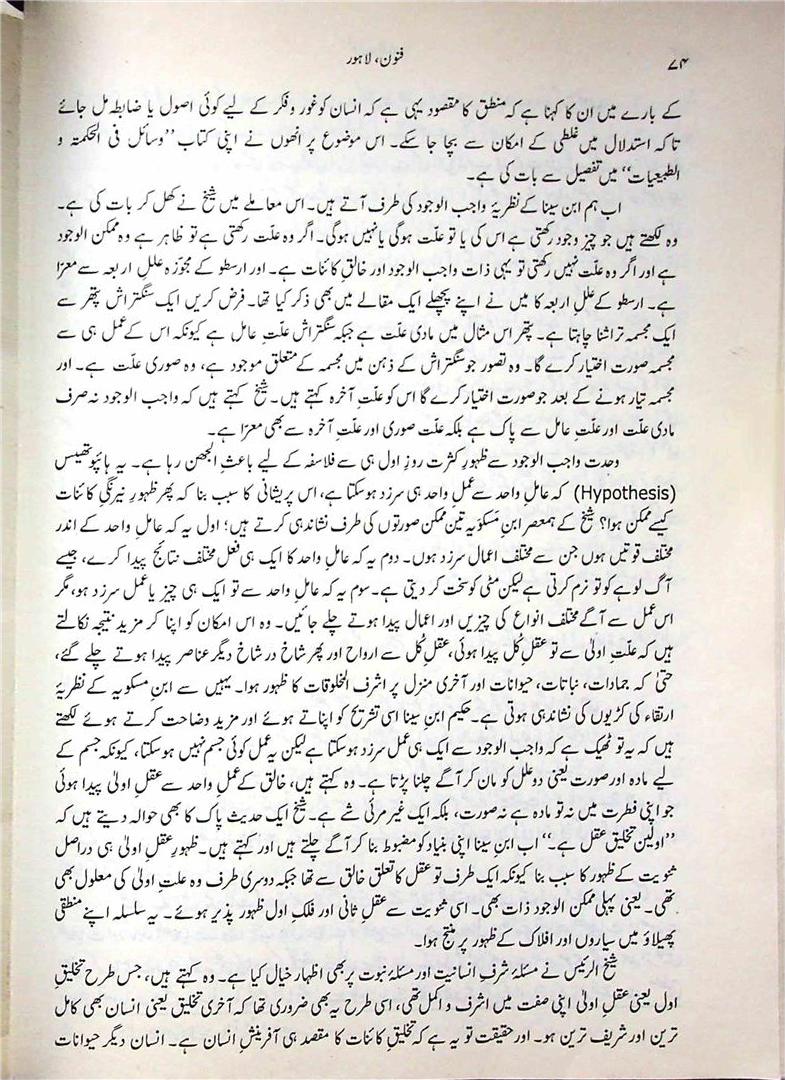 ۷۴
فنون، لاہور
کے بارے میں ان کا کہنا ہے کہ منطق کا مقصود یہی ہے کہ انسان کو غور و فکر کے لیے کوئی اصول یا ضابطہ مل جائے
تا کہ استدلال میں غلطی کے امکان سے بچا جا سکے۔ اس موضوع پر انھوں نے اپنی کتاب ’’وسائل فی الحکمتہ و
الطبعیات‘‘ میں تفصیل سے بات کی ہے۔
اب ہم ابن سینا کے نظریۂ واجب الوجود کی طرف آتے ہیں۔ اس معاملے میں شیخ نے کھل کر بات کی ہے۔
وہ لکھتے ہیں جو چیز وجود رکھتی ہے اس کی یا تو علّت ہوگی یا نہیں ہوگی۔ اگر وہ علّت رکھتی ہے تو ظاہر ہے وہ ممکن الوجود
ہے اور اگر وہ علّت نہیں رکھتی تو یہی ذات واجب الوجود اور خالقِ کائنات ہے۔ اور ارسطو کے مجوّزہ عللِ اربعہ سے معرّا
ہے۔ ارسطو کے عللِ اربعہ کا میں نے اپنے پچھلے ایک مقالے میں بھی ذکر کیا تھا۔ فرض کریں ایک سنگتراش پتھر سے
ایک مجسمہ تراشنا چاہتا ہے۔ پھر اس مثال میں مادی علّت ہے جبکہ سنگتراش علّتِ عامل ہے کیونکہ اس کے عمل ہی سے
مجسمہ صورت اختیار کرے گا۔ وہ تصور جو سنگتراش کے ذہن میں مجسمہ کے متعلق موجود ہے، وہ صوری علّت ہے۔ اور
مجسمہ تیار ہونے کے بعد جو صورت اختیار کرے گا اس کو علّتِ آخرہ کہتے ہیں۔ شیخ کہتے ہیں کہ واجب الوجود نہ صرف
مادی علّت اور علّتِ عامل سے پاک ہے بلکہ علّت صوری اور علّتِ آخرہ سے بھی معرّا ہے۔
وحدت واجب الوجود سے ظہورِ کثرت روزِ اول ہی سے فلاسفہ کے لیے باعثِ الجھن رہا ہے۔ یہ ہائپوتھیسس
(Hypothesis) کہ عاملِ واحد سے عملِ واحد ہی سرزد ہوسکتا ہے، اس پریشانی کا سبب بنا کہ پھر ظہورِ نیرنگیٔ کائنات
کیسے ممکن ہوا؟ شیخ کے ہمعصر ابنِ مَسکوَیہ تین ممکن صورتوں کی طرف نشاندہی کرتے ہیں؛ اول یہ کہ عاملِ واحد کے اندر
مختلف قوتیں ہوں جن سے مختلف اعمال سرزد ہوں۔ دوم یہ کہ عاملِ واحد کا ایک ہی فعل مختلف نتائج پیدا کرے، جیسے
آگ لوہے کو تو نرم کرتی ہے لیکن مٹی کو سخت کر دیتی ہے۔ سوم یہ کہ عاملِ واحد سے تو ایک ہی چیز یا عمل سرزد ہو، مگر
اس عمل سے آگے مختلف انواع کی چیزیں اور اعمال پیدا ہوتے چلے جائیں۔ وہ اس امکان کو اپنا کر مزید نتیجہ نکالتے
ہیں کہ علّتِ اولیٰ سے تو عقلِ کُل پیدا ہوئی، عقلِ کُل سے ارواح اور پھر شاخ در شاخ دیگر عناصر پیدا ہوتے چلے گئے،
حتیٰ کہ جمادات، نباتات، حیوانات اور آخری منزل پر اشرف المخلوقات کا ظہور ہوا۔ یہیں سے ابنِ مسکویہ کے نظریۂ
ارتقاء کی کڑیوں کی نشاندہی ہوتی ہے۔ حکیم ابنِ سینا اسی تشریح کو اپناتے ہوئے اور مزید وضاحت کرتے ہوئے لکھتے
ہیں کہ یہ تو ٹھیک ہے کہ واجب الوجود سے ایک ہی عمل سرزد ہوسکتا ہے لیکن یہ عمل کوئی جسم نہیں ہوسکتا، کیونکہ جسم کے
لیے مادہ اور صورت یعنی دو علل کو مان کر آگے چلنا پڑتا ہے۔ وہ کہتے ہیں، خالق کے عملِ واحد سے عقلِ اولیٰ پیدا ہوئی
جو اپنی فطرت میں نہ تو مادہ ہے نہ صورت، بلکہ ایک غیر مرئی شے ہے۔ شیخ ایک حدیث پاک کا بھی حوالہ دیتے ہیں کہ
’’اولین تخلیق عقل ہے۔‘‘ اب ابنِ سینا اپنی بنیاد کو مضبوط بنا کر آگے چلتے ہیں اور کہتے ہیں۔ ظہورِ عقلِ اولیٰ ہی دراصل
ثنویت کے ظہور کا سبب بنا کیونکہ ایک طرف تو عقل کا تعلق خالق سے تھا جبکہ دوسری طرف وہ علتِ اولیٰ کی معلول بھی
تھی۔ یعنی پہلی ممکن الوجود ذات بھی۔ اسی ثنویت سے عقلِ ثانی اور فلکِ اول ظہور پذیر ہوئے۔ یہ سلسلہ اپنے منطقی
پھیلاؤ میں سیاروں اور افلاک کے ظہور پر منتج ہوا۔
شیخ الرئیس نے مسئلۂ شرفِ انسانیت اور مسئلۂ نبوت پر بھی اظہار خیال کیا ہے۔ وہ کہتے ہیں، جس طرح تخلیقِ
اول یعنی عقلِ اولیٰ اپنی صفت میں اشرف و اکمل تھی، اسی طرح یہ بھی ضروری تھا کہ آخری تخلیق یعنی انسان بھی کامل
ترین اور شریف ترین ہو۔ اور حقیقت تو یہ ہے کہ تخلیقِ کائنات کا مقصد ہی آفرینشِ انسان ہے۔ انسان دیگر حیوانات